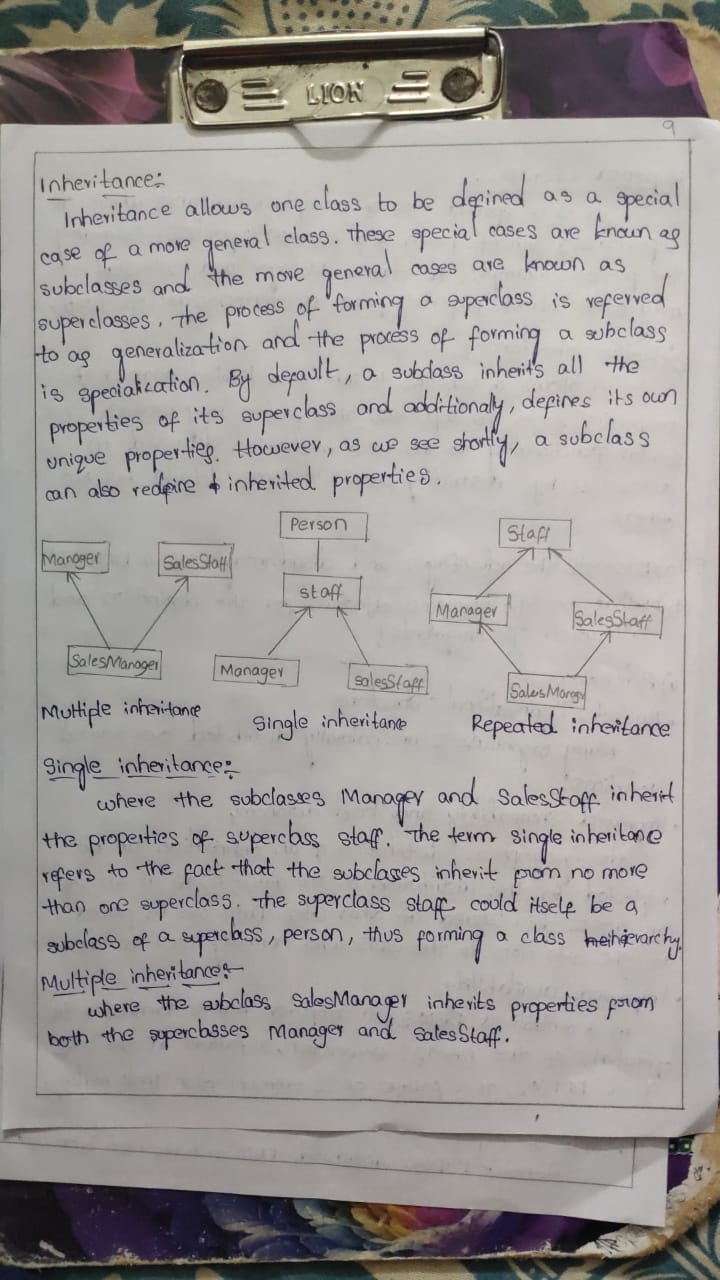 LION
9
Inheritance:-
Inheritance allows one class to be defined as a special
case of a more general class. These special cases are known as
subclasses and the more general cases are known as
superclasses. The process of forming a superclass is referred
to as generalization and the process of forming a subclass
is specialization. By default, a subclass inherits all the
properties of its superclass and additionally, defines its own
unique properties. However, as we see shortly, a subclass
can also redefine inherited properties.
Person
Staff
Manager
SalesStaff
staff
Manager
SalesStaff
SalesManager
Manager
salesStaff
Multiple inheritance
Single inheritance
Repeated inheritance
Single inheritance:-
where the subclasses Manager and SalesStaff inherit
the properties of superclass staff. The term single inheritance
refers to the fact that the subclasses inherit from no more
than one superclass. The superclass staff could itself be a
subclass of a superclass, person, thus forming a class hierarchy.
Multiple inheritance:-
where the subclass SalesManager inherits properties from
both the superclasses Manager and SalesStaff.